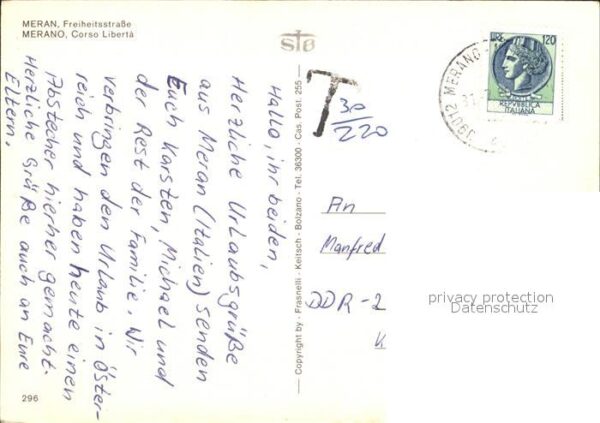 MERAN, Freiheitsstraße
MERANO, Corso Libertà
Hallo, ihr beiden,
Herzliche Urlaubsgrüße
aus Meran (Italien) senden
Euch Karsten, Michael und
der Rest der Familie. Wir
verbringen den Urlaub in Öster-
reich und haben heute einen
Abstecher hierher gemacht.
Herzliche Grüße auch an Eure
Eltern.
296
Copyright by · Frasnelli - Keitsch - Bolzano - Tel. 36300 - Cas. Post. 255
STB
T
30
220
LIRE 120
REPVBBLICA
ITALIANA
39012 MERANO
An
Manfred
DDR-2
privacy protection
Datenschutz